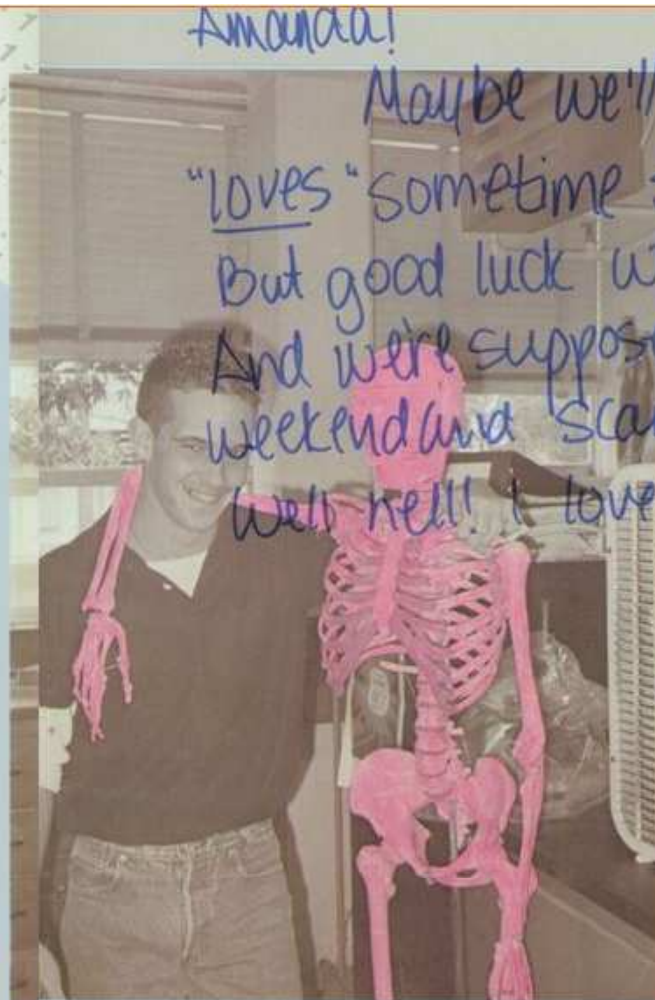 Amanda!
Maybe we'll
"loves" sometime
But good luck
And we're suppos
weekend and sca
Well hell! I love